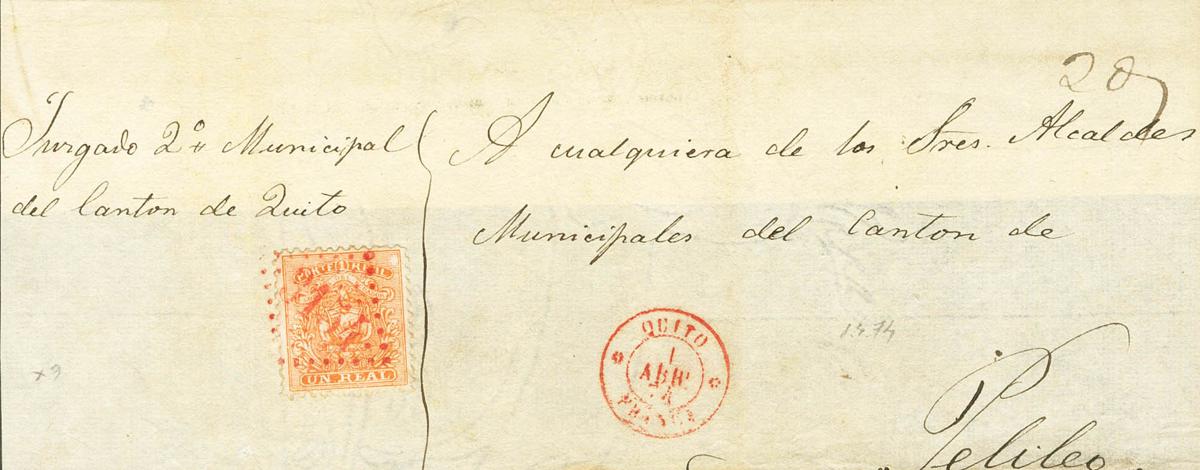 20
Juzgado 2º Municipal
del Canton de Quito
A cualquiera de los Sres. Alcaldes
Municipales del Canton de
Pelileo.
UN REAL
QUITO
1
ABR
FRANCA
1874
x9